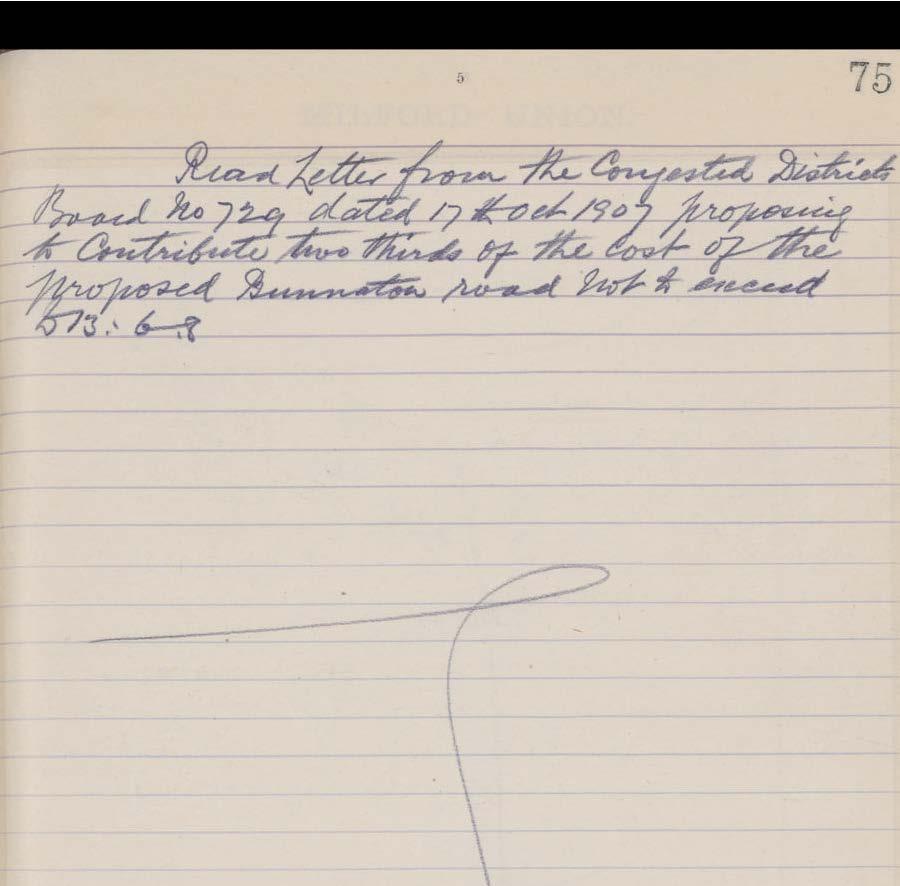 5
75
Read Letter from the Congested Districts
Board No 729 dated 17th Oct 1907 proposing
to Contribute two thirds of the cost of the
proposed Bunnaton road Not to exceed
573: 6-8